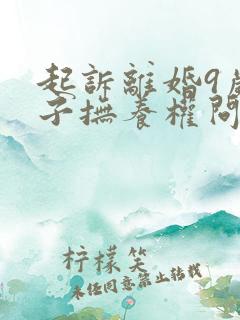 起訴離婚9歲
子撫養權問
柠檬笑
未经同意禁止转载